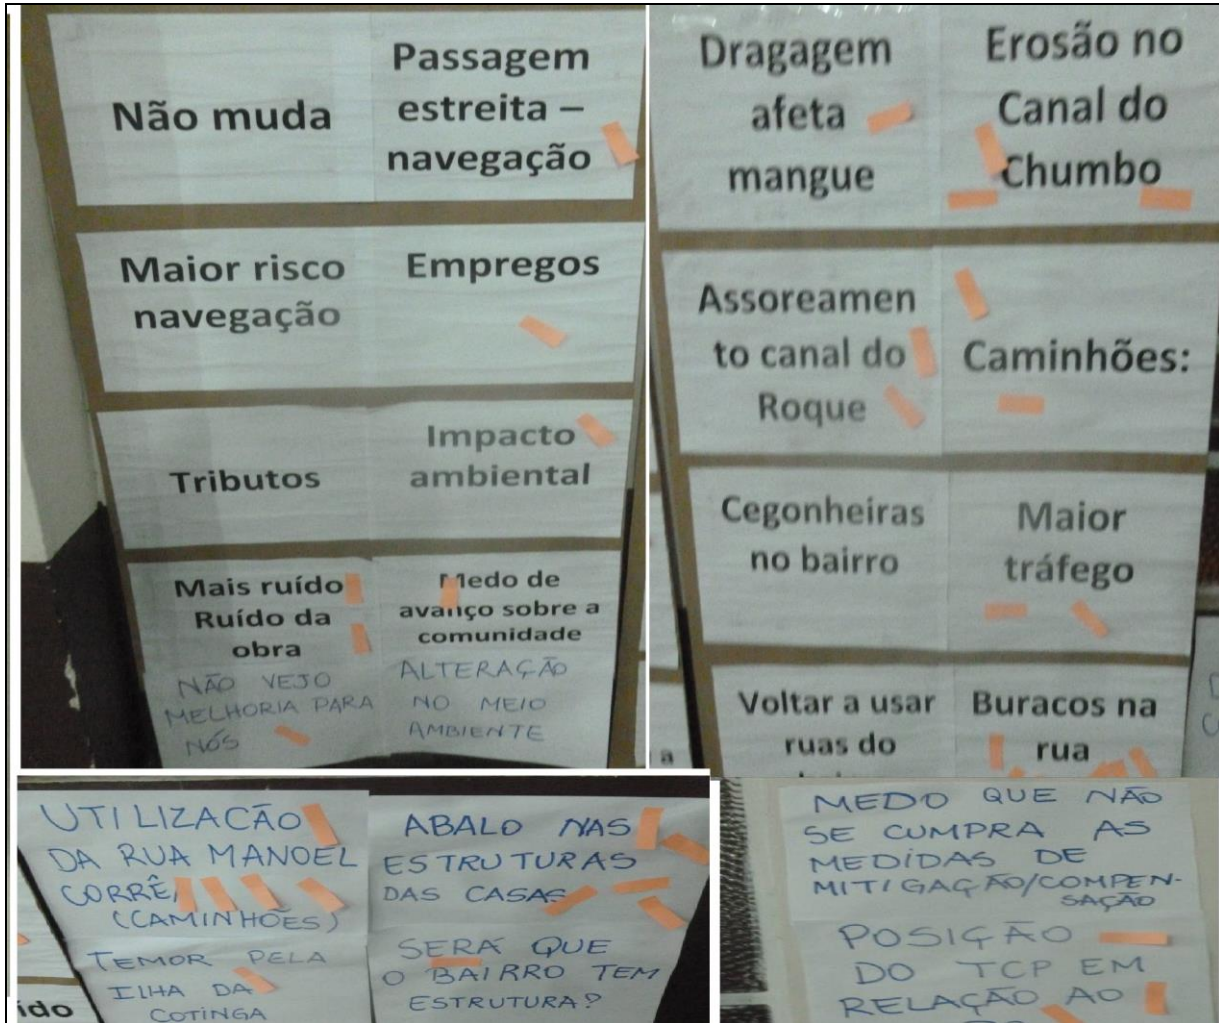 Não muda
Passagem
estreita –
navegação
Maior risco
navegação
Empregos
Tributos
Impacto
ambiental
Mais ruído
Ruído da
obra
NÃO VEJO
MELHORIA PARA
NÓS
Medo de
avanço sobre a
comunidade
ALTERAÇÃO
NO MEIO
AMBIENTE
Dragagem
afeta
mangue
Erosão no
Canal do
Chumbo
Assoreamen
to canal do
Roque
Caminhões:
Cegonheiras
no bairro
Maior
tráfego
Voltar a usar
ruas do
Buracos na
rua
a
UTILIZAÇÃO
DA RUA MANOEL
CORRÊ
(CAMINHÕES)
TEMOR PELA
ILHA DA
COTINGA
ído
ABALO NAS
ESTRUTURAS
DAS CASAS
SERÁ QUE
O BAIRRO TEM
ESTRUTURA?
MEDO QUE NÃO
SE CUMPRA AS
MEDIDAS DE
MITIGAÇÃO/COMPEN-
SAÇÃO
POSIÇÃO
DO TCP EM
RELAÇÃO AO